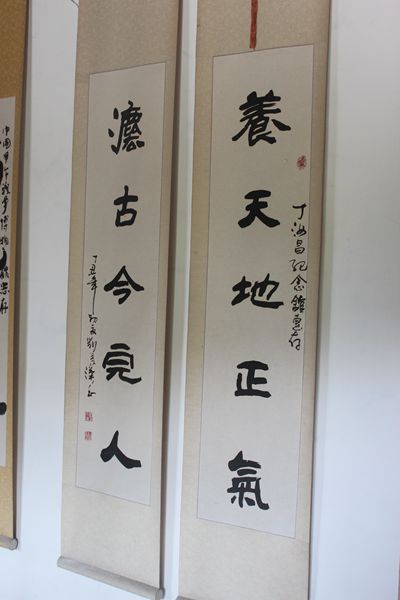 養天地正氣
丁汝昌纪念館惠存
灋古今完人
丁丑年初夏劉
中國甲午戰爭博物館惠存